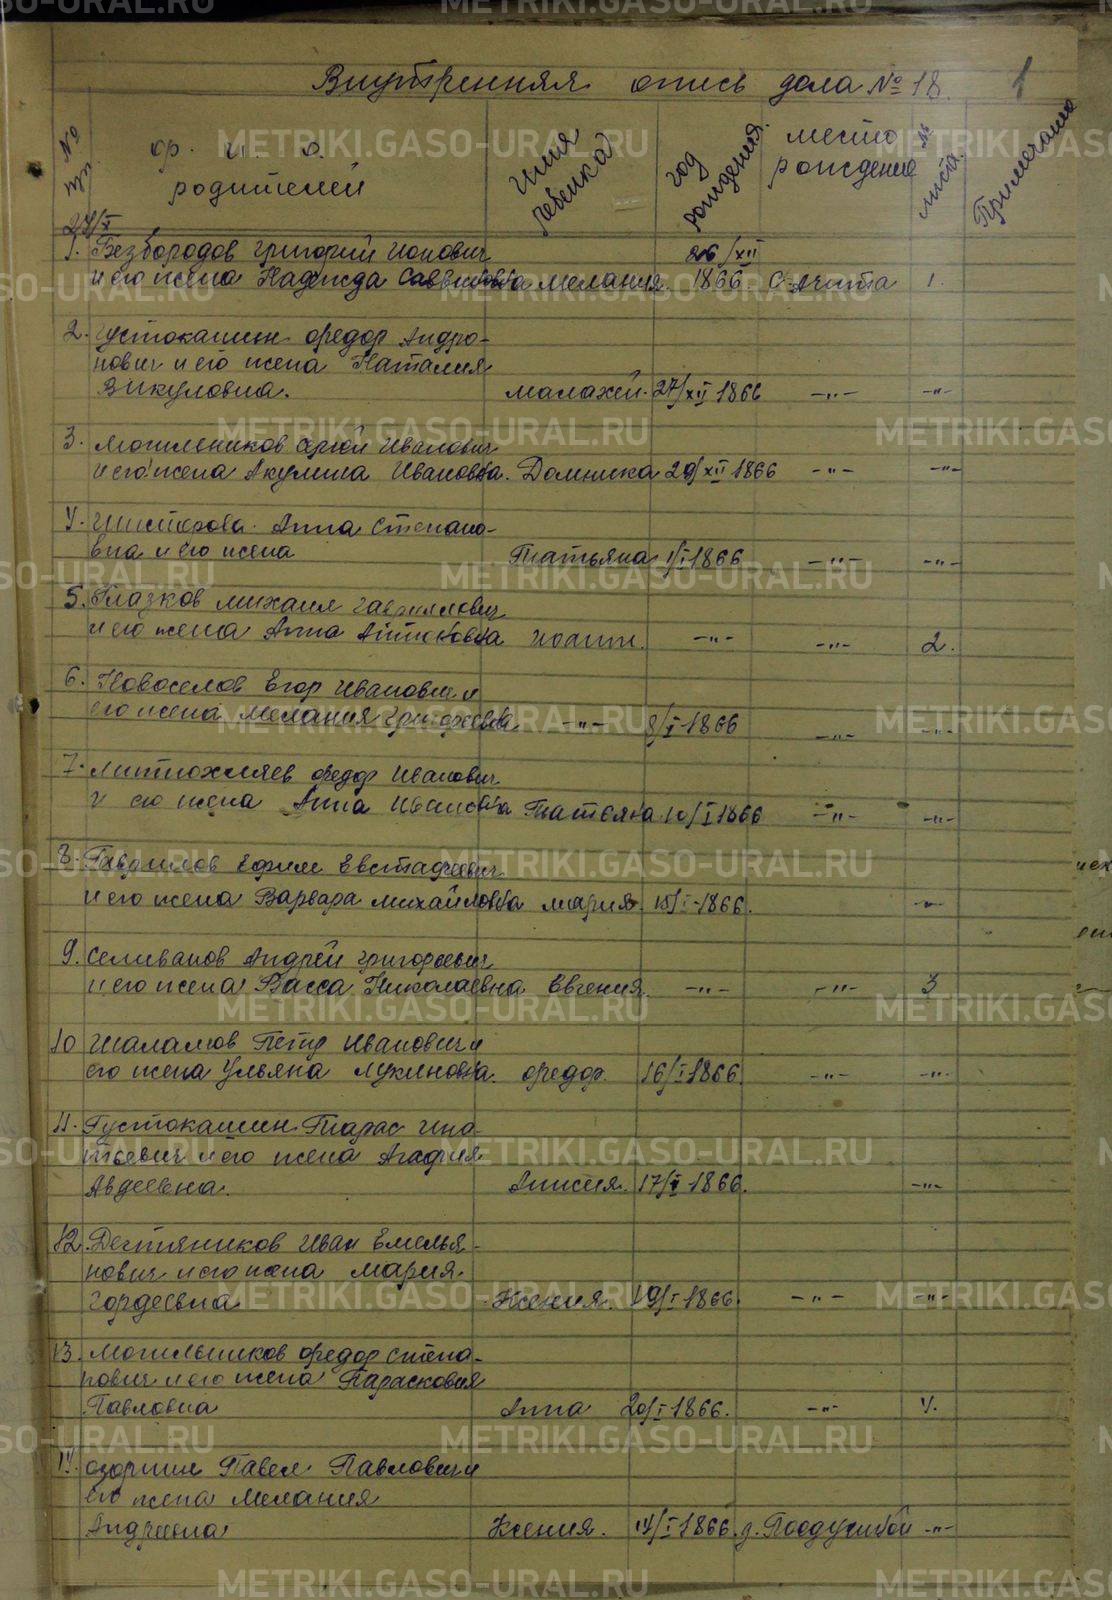 Внутренняя опись дела № 18. 1
№ пп
ф. и. о. родителей
Имя ребенка
год рождения.
место рождение
№ листа.
Примечание
27/X
1. Безбородов Григорий Ионович 26/XII
и его жена Надежда Саввиновна Мелания. 1866 С-Ачита 1.
2. Густокашин Федор Андро-
нович и его жена Наталия
Викуловна. Малахей. 27/XII 1866 -"- -"-
3. Могильников Сергей Иванович
и его жена Акулина Ивановна. Домника 29/XII 1866 -"- -"-
4. Шистерова Анна Степано-
вна и его жена Татьяна 1/I 1866 -"- -"-
5. Глазков Михаил Гаврилович
и его жена Анна Иоанн. -"- -"- 2.
6. Новоселов Егор Иванович и
его жена Мелания Григорьевна -"- 8/I-1866 -"- -"-
7. Федор Иванович
и его жена Анна Ивановна Татьяна 10/I 1866 -"- -"-
8. Гаврилов Ефим Евстафеевич
и его жена Варвара Михайловна Мария 15/I-1866. -"-
9. Селиванов Андрей Григорьевич
и его жена Васса Николаевна Евгения. -"- -"- 3
10 Шаламов Петр Иванович и
его жена Ульяна Лукиновна. Федор. 16/I 1866. -"- -"-
11. Густокашин Тарас Игна-
тьевич и его жена Агафия
Авдеевна. Анисия. 17/I 1866. -"-
12. Дегтяников Иван Емелья-
нович и его жена Мария
Гордеевна Ксения. 19/I 1866. -"- -"-
13. Могильников Федор Степа-
нович и его жена Парасковия
Павловна Анна 20/I 1866. -"- 4.
14. Озорнин Павел Павлович и
его жена Мелания
Андреевна Ксения. 14/I 1866. -"-
METRIKI.GASO-URAL.RU